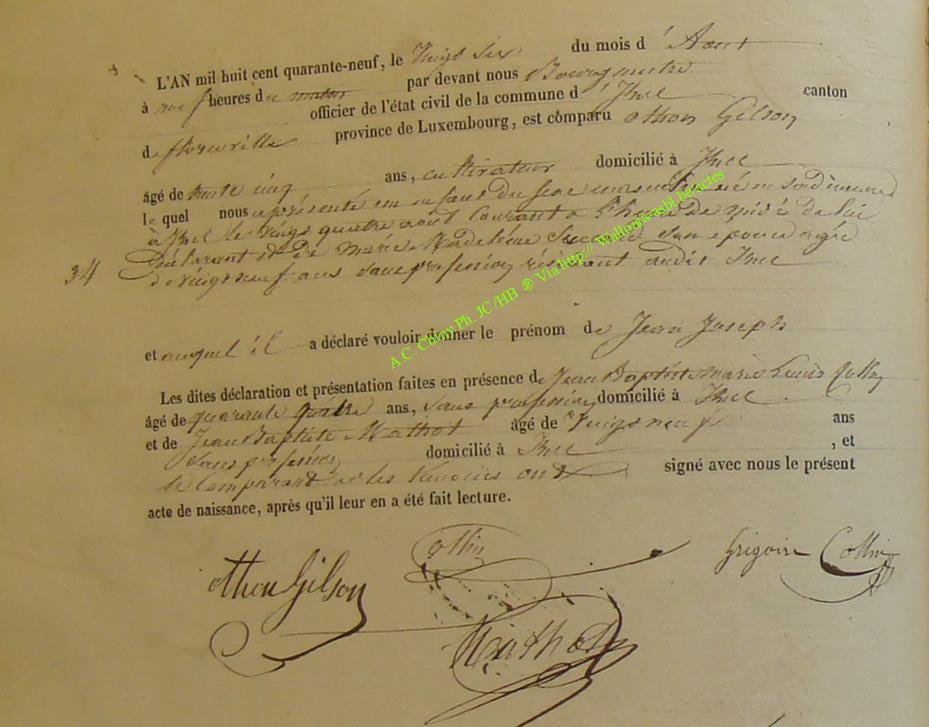 L'AN mil huit cent quarante-neuf, le Vingt six du mois d' Aout
à neuf heures du matin par devant nous Bourgmestre
officier de l'état civil de la commune d' Izel canton
de florenville province de Luxembourg, est comparu othon Gilson
âgé de trente cinq ans, cultivateur domicilié à Izel
le quel nous a présenté un enfant du sexe masculin né en sa demeure
à Izel le vingt quatre aout courant a heures de de lui
Déclarant et de Marie Madeleine son epouse agée
34 de vingt neuf ans sans profession résidant audit Izel
et auquel il a déclaré vouloir donner le prénom de Jean Joseph
Les dites déclaration et présentation faites en présence de Jean Baptiste Marie Louis Collin
âgé de quarante quatre ans, sans profession domicilié à Izel
et de Jean Baptiste Mathot âgé de Vingt neuf ans
sans profession domicilié à Izel , et
le Comparant et les témoins ont signé avec nous le présent
acte de naissance, après qu'il leur en a été fait lecture.
Collin
othon Gilson
Grégoire Collin
Mathot
A.C. Chiny Ph. JC/HB ® Via http:// Wallonia asbl.be/actes